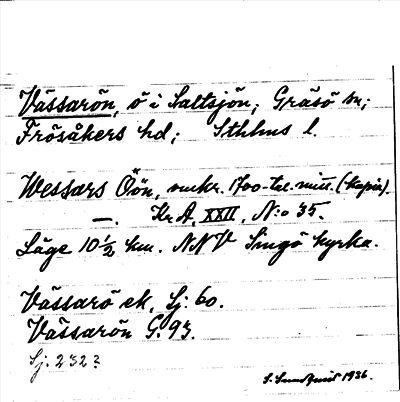 Vässarön, ö i Saltsjön; Gräsö sn;
Frösåkers hd; Sthlms l.
Wessars Öön, omkr. 1700-tal. mitt. (kopia).
—. Kr. A. XXII, N:o 35.
Läge 10 1/2 km. NNV Singö kyrka.
Vässarö ek. Sj: 60.
Vässarön G. 93.
Sj: 232?
S. Sundquist 1936.